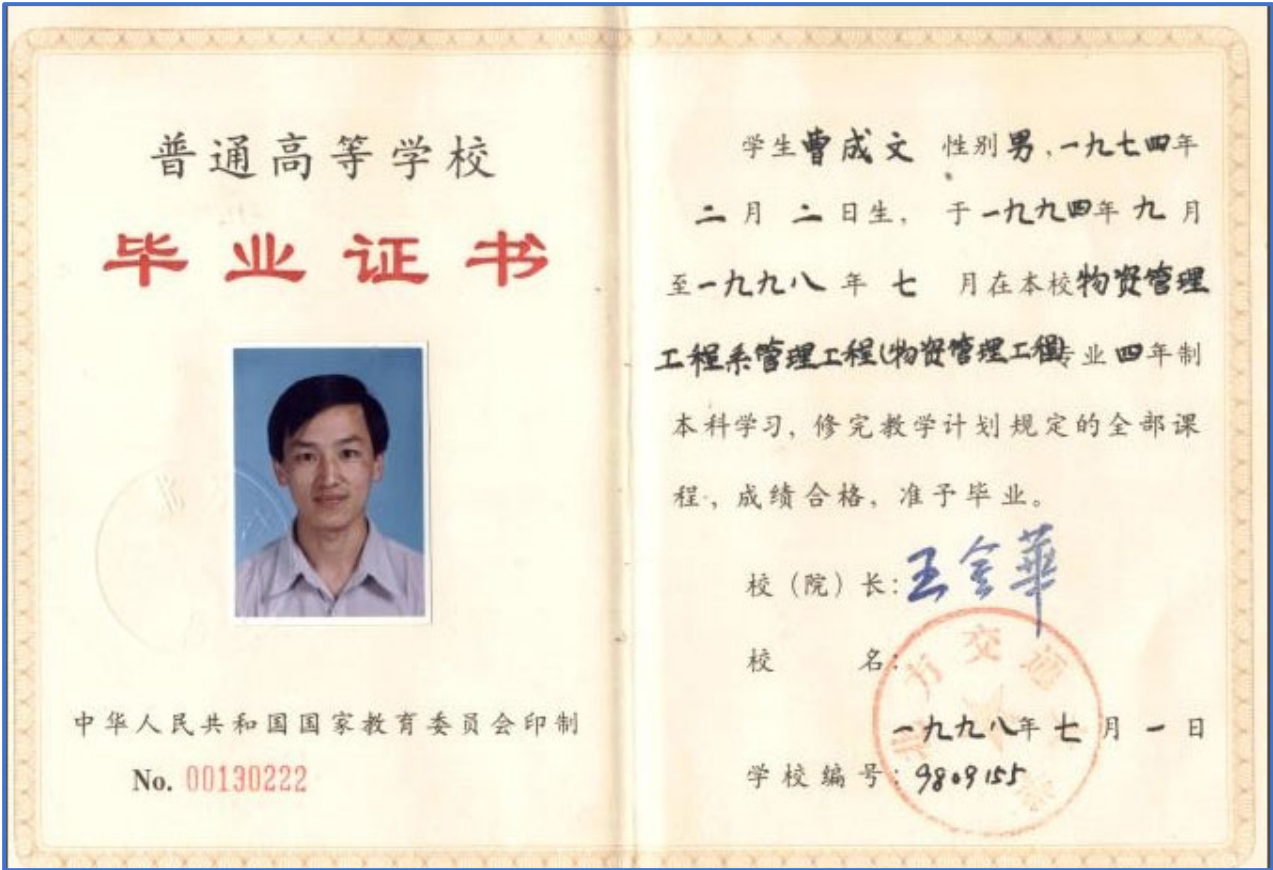 普通高等学校
毕业证书
中华人民共和国国家教育委员会印制
No. 00130222
学生曹成文 性别男，一九七四年
二月二日生，于一九九四年九月
至一九九八年七月在本校物资管理
工程系管理工程(物资管理工程)专业四年制
本科学习，修完教学计划规定的全部课
程，成绩合格，准予毕业。
校（院）长：王金華
校名：
北方交通大学
一九九八年七月一日
学校编号：9809155